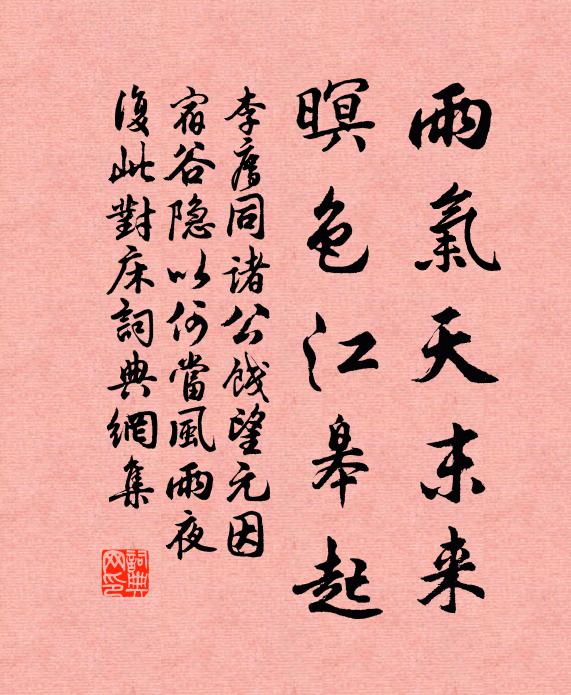 雨氣天末来
暝色江皋起
李廌同諸公餞望元因
宿谷隐以何當風雨夜
復此對床詞典網集
詞典网印